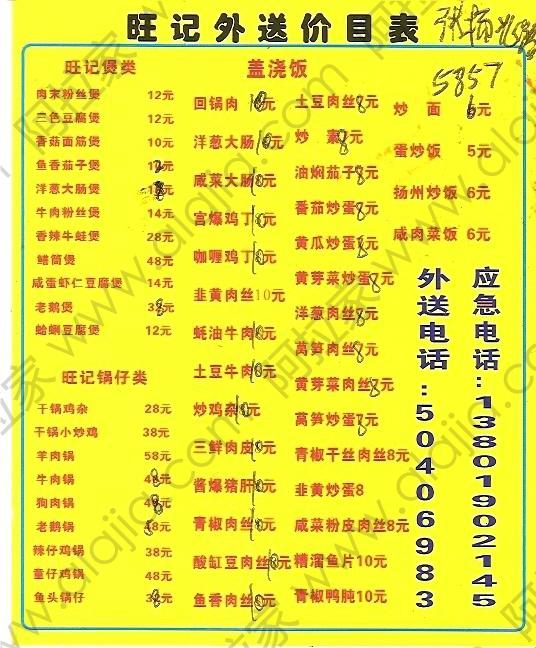 旺记外送价目表
5857
旺记煲类
肉末粉丝煲 12元
三色豆腐煲 12元
香菇面筋煲 10元
鱼香茄子煲 元
洋葱大肠煲 元
牛肉粉丝煲 14元
香辣牛蛙煲 28元
蛏筒煲 48元
咸蛋虾仁豆腐煲 14元
老鹅煲 38元
蛤蜊豆腐煲 12元
旺记锅仔类
干锅鸡杂 28元
干锅小炒鸡 38元
羊肉锅 58元
牛肉锅 48元
狗肉锅 48元
老鹅锅 元
辣仔鸡锅 38元
童仔鸡锅 48元
鱼头锅仔 38元
盖浇饭
回锅肉 10元
洋葱大肠 10元
咸菜大肠 10元
宫爆鸡丁 10元
咖喱鸡丁 10元
韭黄肉丝10元
蚝油牛肉 10元
土豆牛肉 10元
炒鸡杂 10元
三鲜肉皮 10元
酱爆猪肝 10元
青椒肉丝 10元
酸缸豆肉丝 10元
鱼香肉丝 10元
土豆肉丝8元
炒素8元
油焖茄子8元
番茄炒蛋8元
黄瓜炒蛋8元
黄芽菜炒蛋8元
洋葱肉丝8元
莴笋肉丝8元
黄芽菜肉丝8元
莴笋炒蛋8元
青椒干丝肉丝8元
韭黄炒蛋8
咸菜粉皮肉丝8元
糟溜鱼片10元
青椒鸭肫10元
炒面 6元
蛋炒饭 5元
扬州炒饭 6元
咸肉菜饭 6元
应急电话:13801902145
外送电话:50406983
www.alajia.com
阿拉家